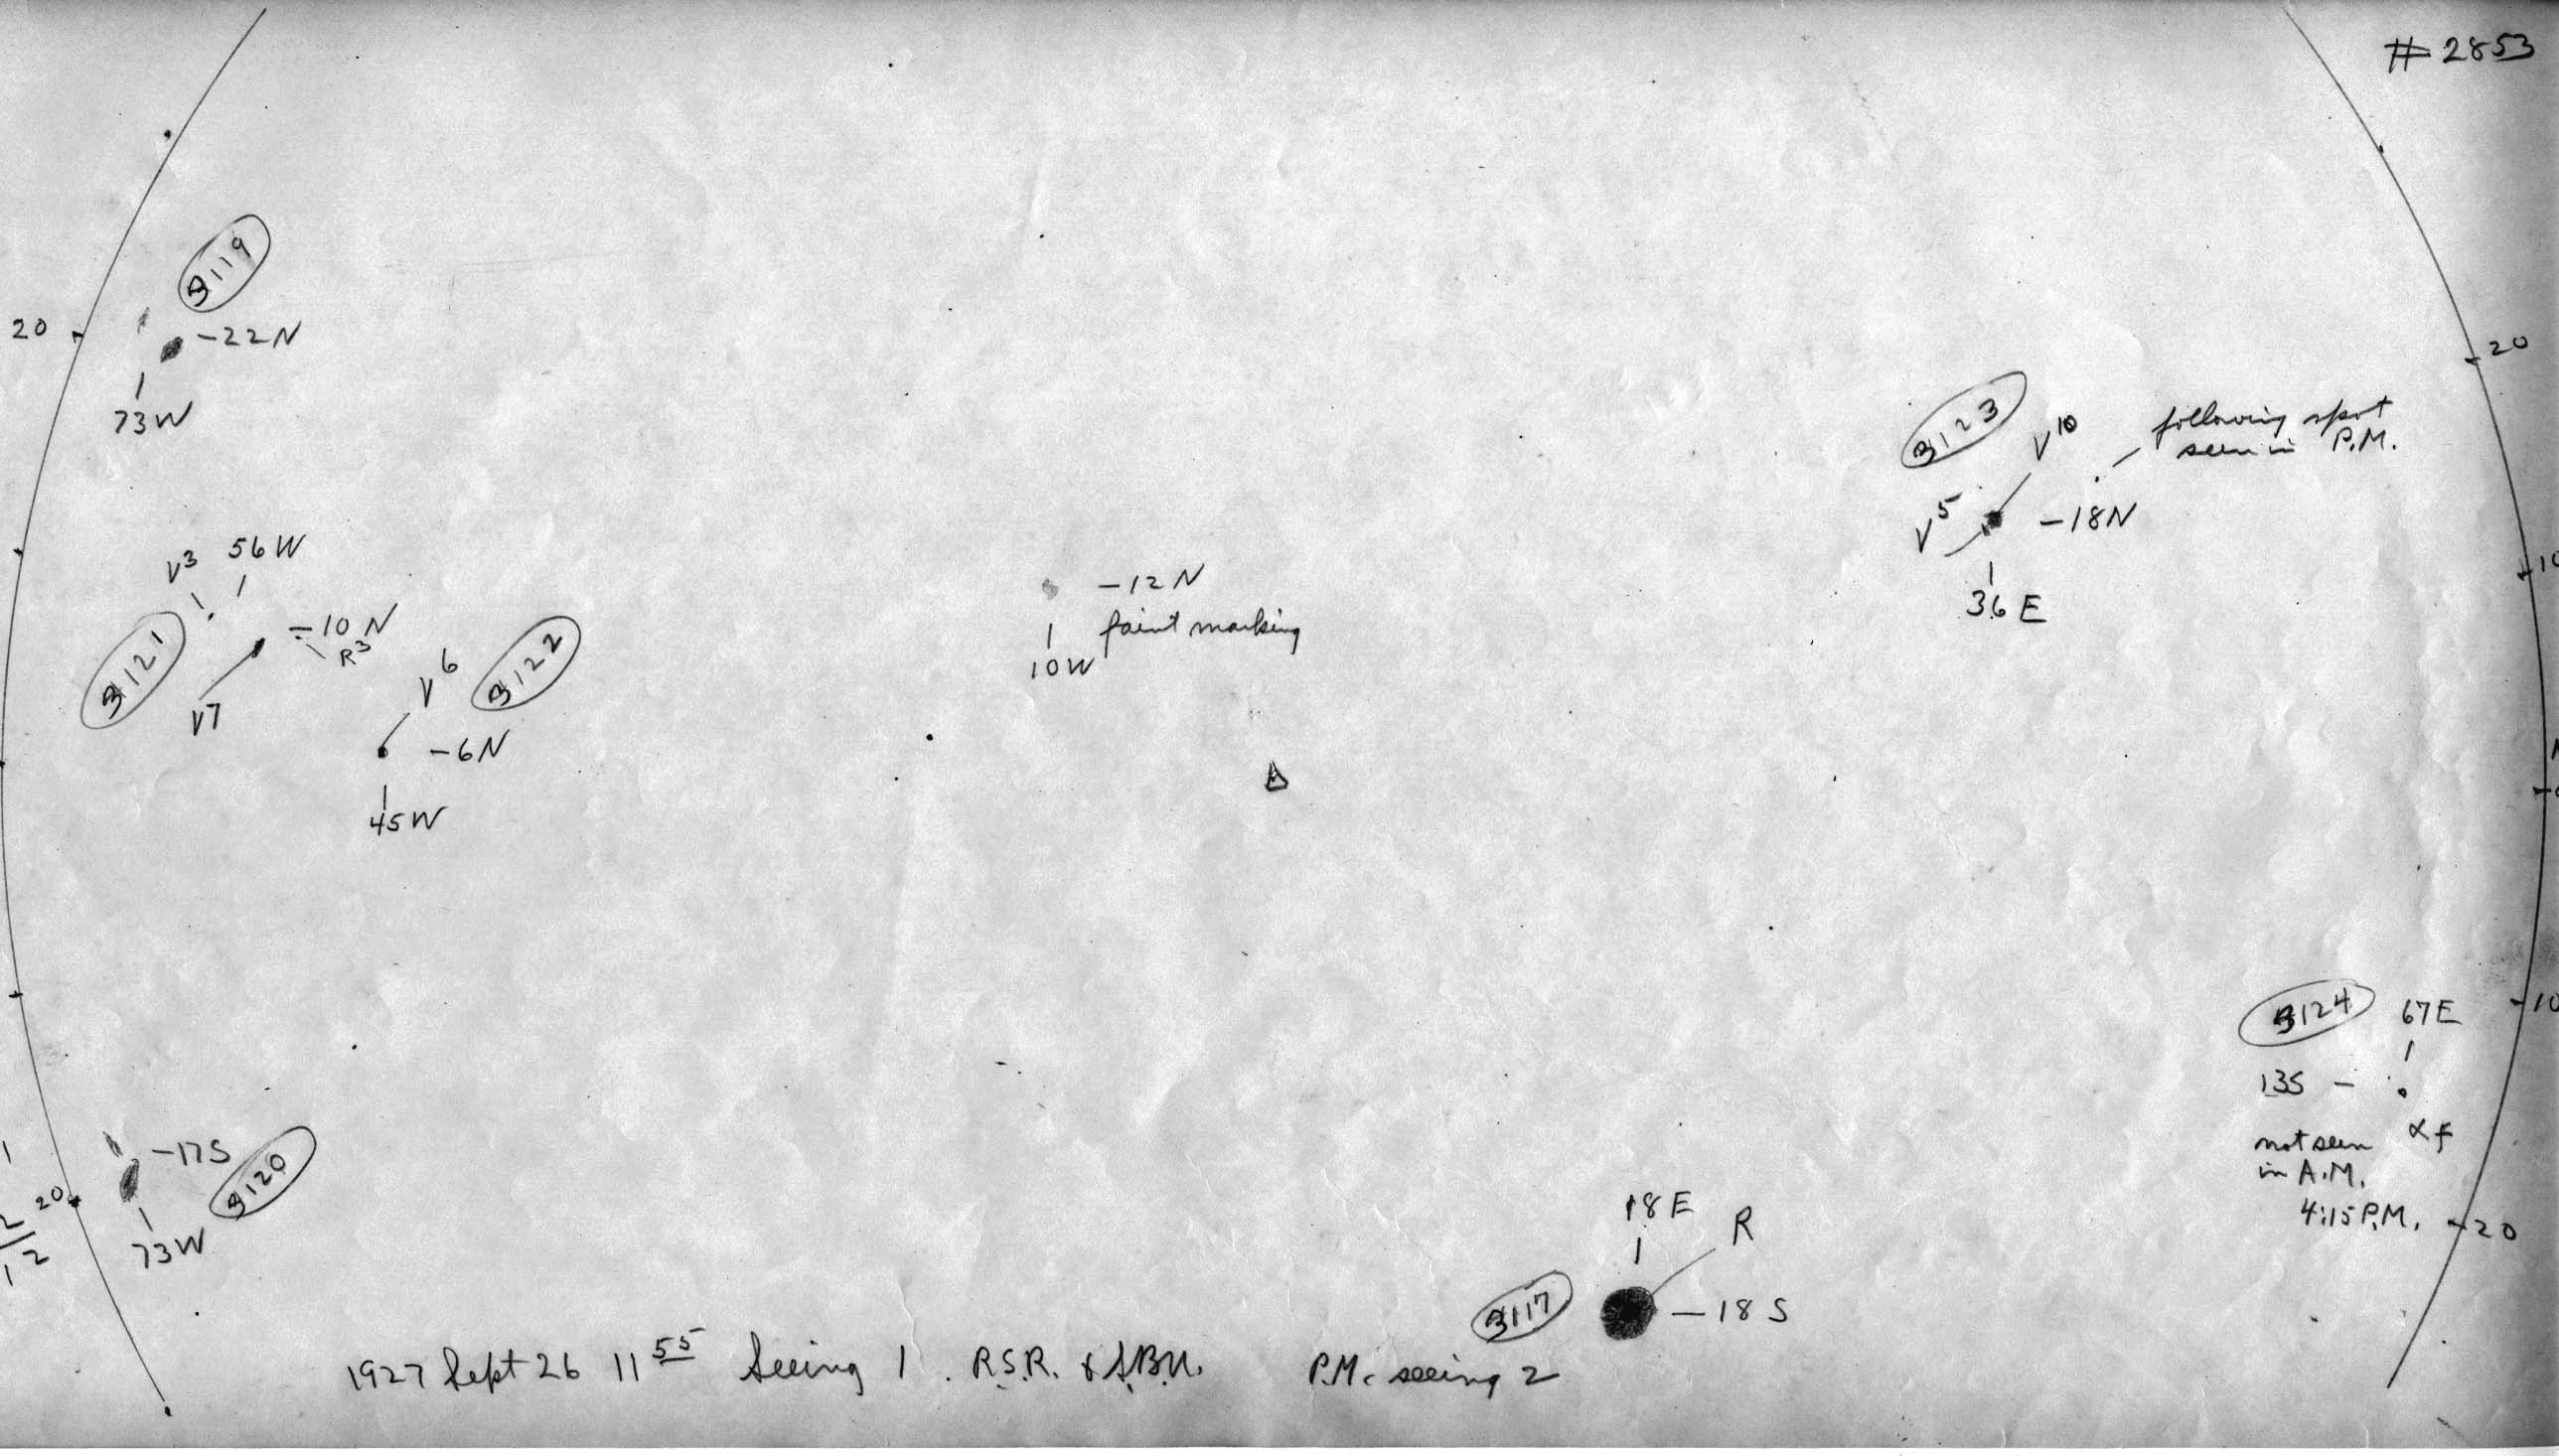 #2853
3119
20
-22N
73W
20
3123
V10
following spot
seen in P.M.
V5
-18N
36E
10
V3
56W
-10N
R3
3121
V7
V6
3122
-6N
45W
-12N
faint marking
10W
3124
67E
10
13S -
αf
not seen
in A.M.
4:15 P.M.
20
-17S
3120
20
73W
18E
R
3117
-18S
1927 Sept 26 11 55 Seeing 1. R.S.R. & S.B.N. P.M. seeing 2